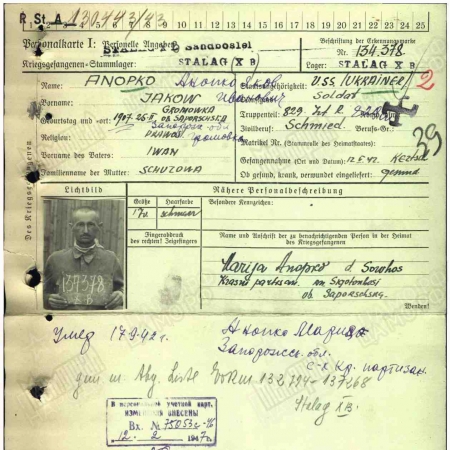 1 2 3 4 5 6 7 8 9 10 11 12 13 14 15 16 17 18 19 20 21 22 23 24 25
R. St. A. 130443/43
Personalkarte I: Personelle Angaben
Beschriftung der Erkennungsmarke
Nr. 134.378
Kriegsgefangenen-Stammlager: STALAG X B Sandbostel
Lager: STALAG X B
Des Kriegsgefangenen
Name: ANOPKO Анопко Яков
Staatsangehörigkeit: USS. (UKRAINER) 2
Vorname: JAKOW Иванович
Dienstgrad: Soldat
Geburtstag und -ort: 1907. GROMOWKA OB. SAPORSCHSK
Truppenteil: 829. Inf. R.
Запорож. обл.
Zivilberuf: Schmied. Berufs-Gr.
Religion: PRAWOSL. Громовка
Matrikel Nr. (Stammrolle des Heimatstaates)
29
Vorname des Vaters: IWAN
Gefangennahme (Ort und Datum): 12.5.42. Kertsch
Familienname der Mutter: SCHUZOWA
Ob gesund, krank, verwundet eingeliefert: gesund
Lichtbild
Nähere Personalbeschreibung
Größe
Haarfarbe
Besondere Kennzeichen:
170 schwarz
Fingerabdruck
des rechten! Zeigefingers
Name und Anschrift der zu benachrichtigenden Person in der Heimat
des Kriegsgefangenen
134378
X B
Marija Anopko d Sowchos
Krasni partisan
ob. Saporschsk.
Wenden!
Умер 17.9.42 г.
Анопко Мария
Запорожск. обл.
с-х Кр. партизан.
Abg. Liste
Stalag XB.
В персональной учетной карт.
ИЗМЕНЕНИЯ ВНЕСЕНЫ
Вх. № 75053
12. 2 1947 г.